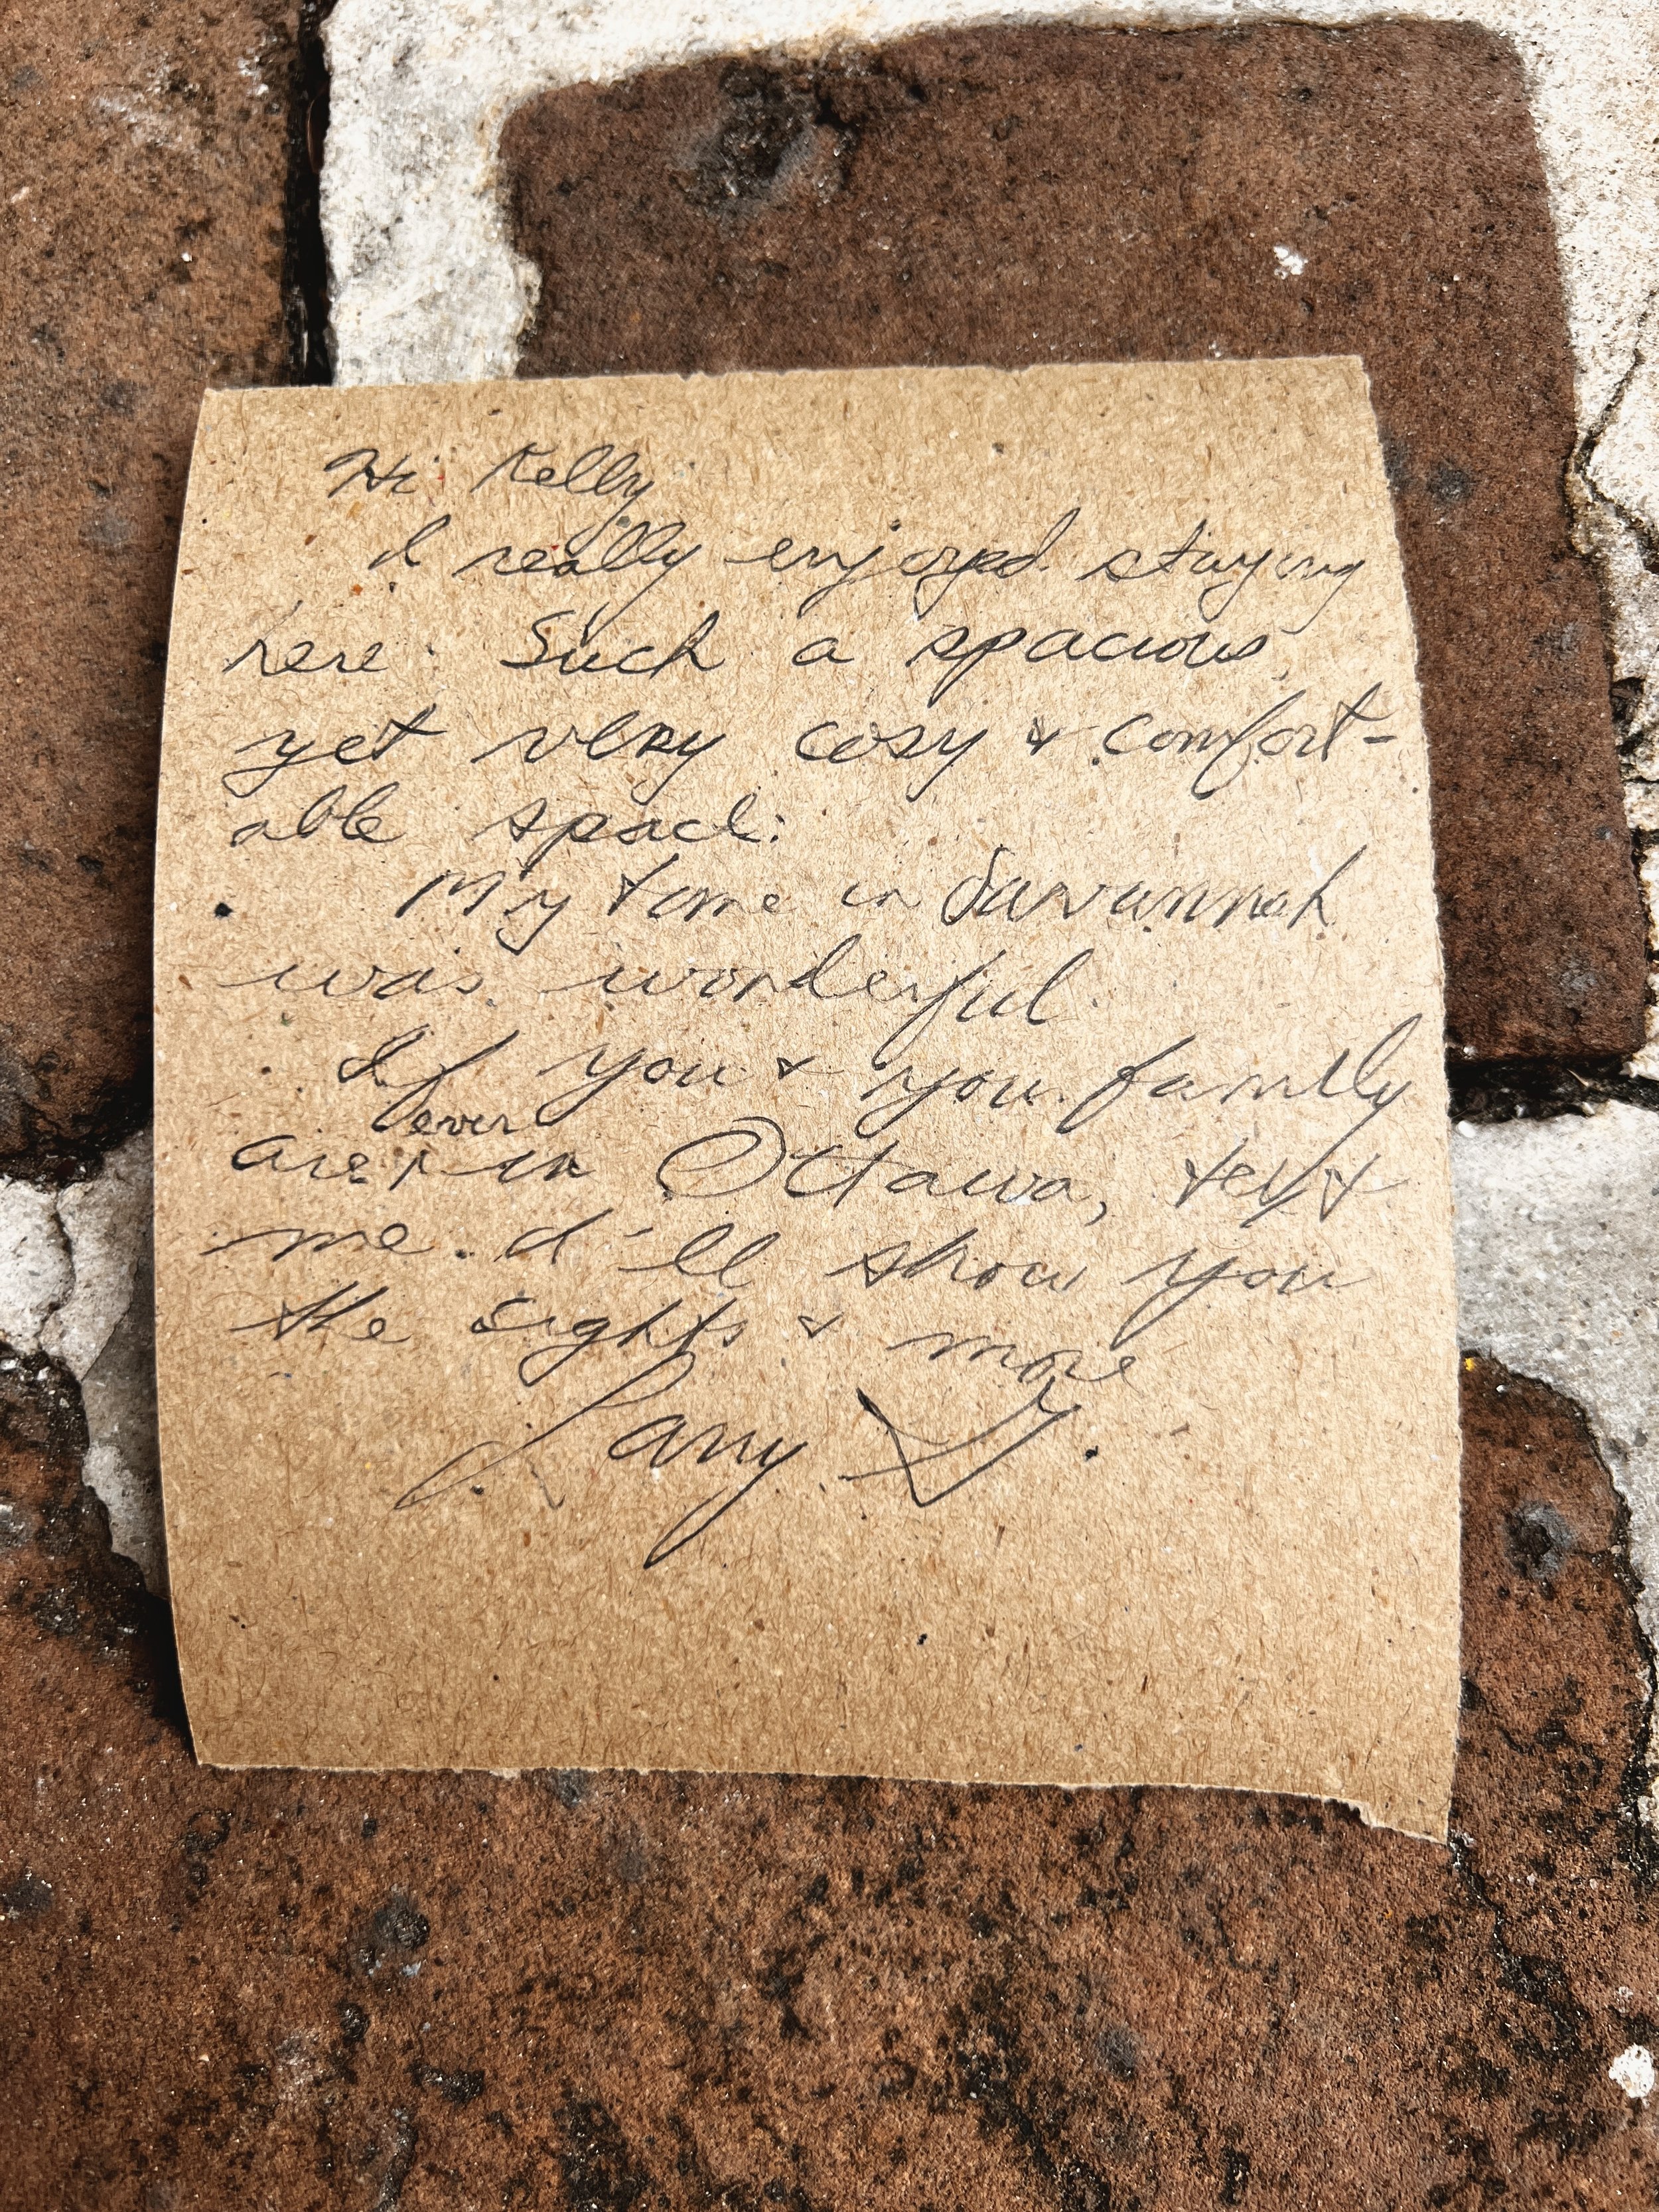 Hi Kelly
I really enjoyed staying
here. Such a spacious,
yet very cosy & comfort-
able space.
My time in Savannah
was wonderful.
If you & you family
ever
are in Ottawa, text
me. I'll show you
the sights & more
Larry